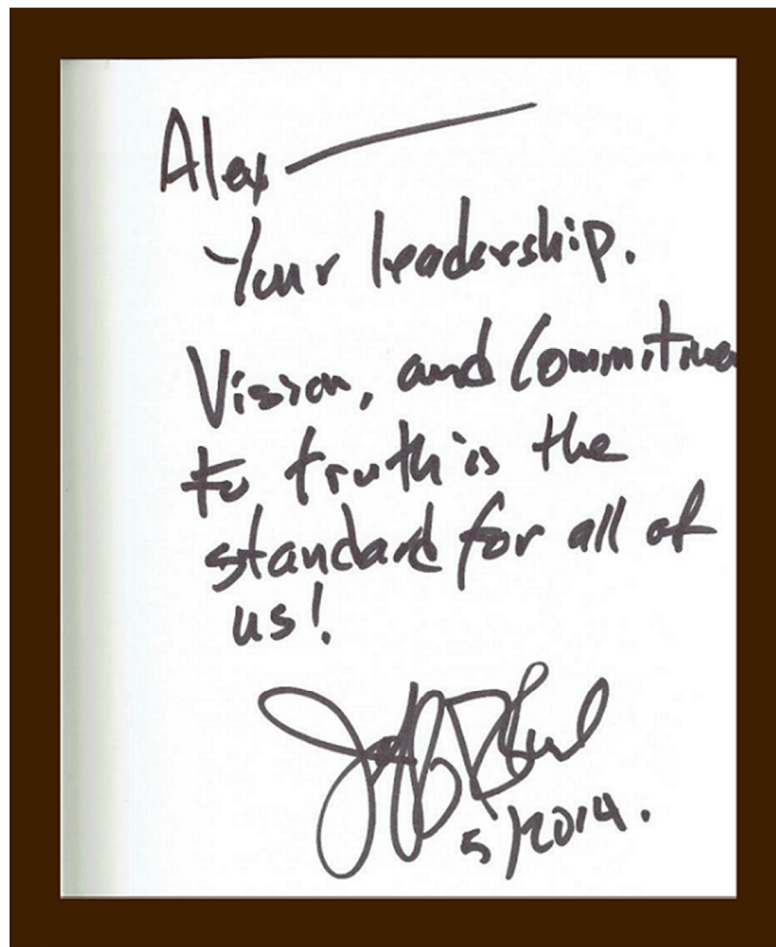 Alex —
Your leadership.
Vision, and Commitme
to truth is the
standard for all of
us!
5/2014.